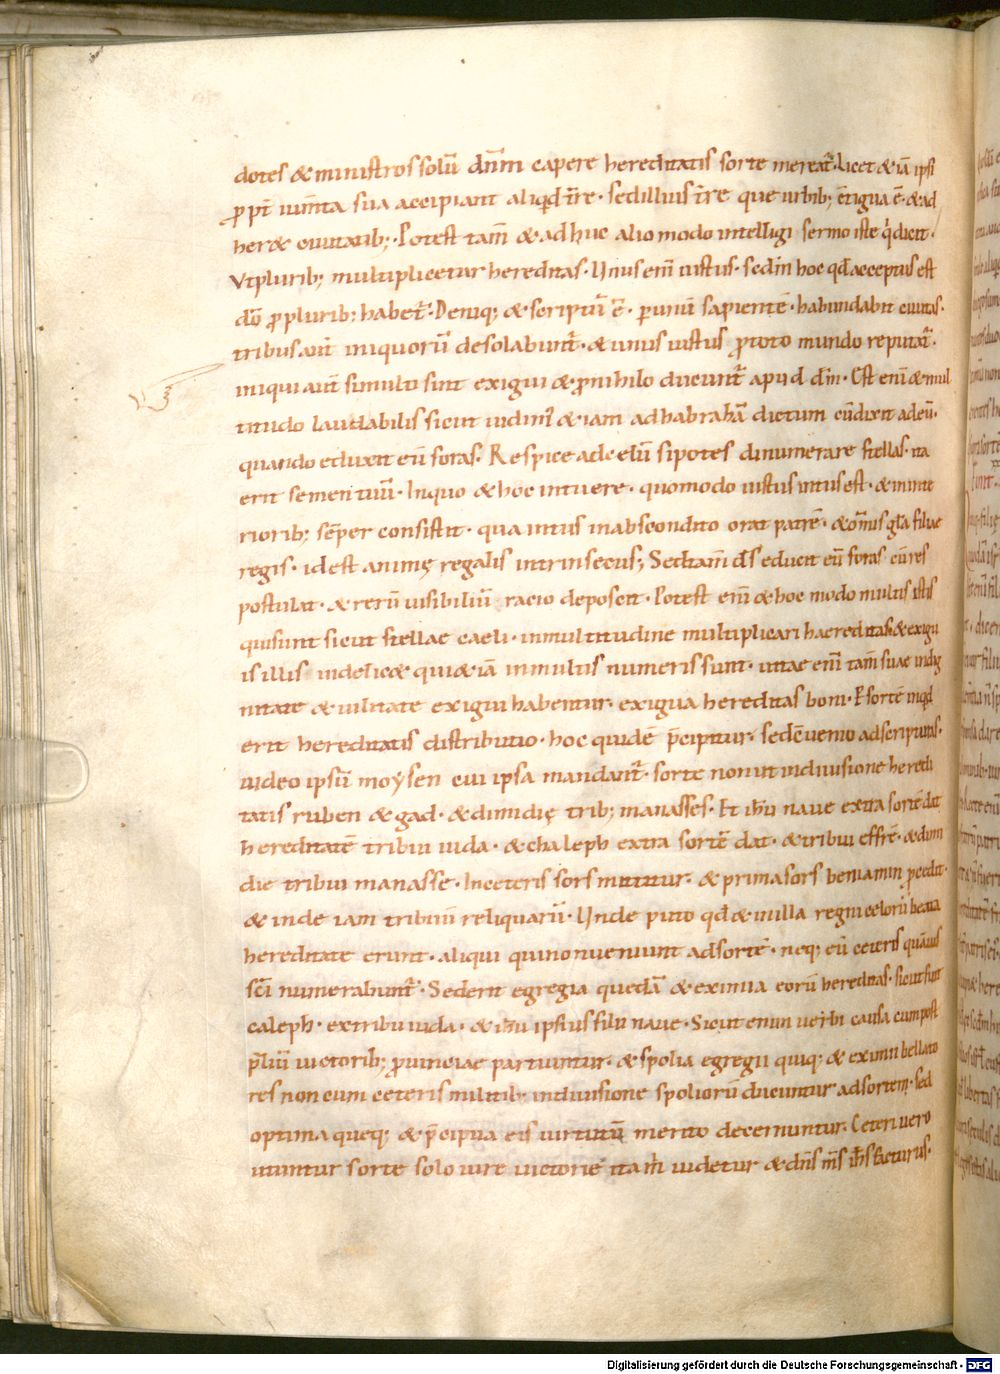 dotes & ministros solū dn̄m capere hereditatis sorte mereat̄. Licet & iā ipsi
ꝓpt̄ ium̄ta sua accipiant aliqd t̄re. sed illius t̄re que urbib; cōtigua ē. & ad
heret ciuitatib;. Potest tam̄ & adhuc alio modo intelligi sermo iste q̇ dicit.
Vt plurib; multiplicetur hereditas. Unus em̄ iustus. sed in hoc qđ acceptus est
dō ꝓ plurib; habet̄. Deniq; & scriptū ē. per unū sapientē. habundabit ciuitas.
tribus aut̄ iniquorū desolabunt̄. & unus iustus ꝓ toto mundo reputat̄.
iniqui aut̄ si multi sint exigui & ꝓ nihilo ducunt̄ apud dm̄. Est eni & mul
titudo laudabilis sicut uidim̄ & iam ad habrahā dictum cū dixit ad eū.
quando eduxit eū foras. Respice ad celū si potes dinumerare stellas. ita
erit semen tuū. In quo & hoc intuere. quomodo iustus intus est. & in inte
riorib; sēper consistit. qua intus in abscondito orat patrē. & om̄is gla filiae
regis. id est animę regalis intrinsecus; Sed tam̄ ds̄ educit eū foras cū res
postulat. & rerū uisibiliū racio deposcit. Potest em̄ & hoc modo multis istis
qui sunt sicut stellae caeli. in multitudine multiplicari haereditas. & exigu
is illis indelicæ qui & iā in multis numeris sunt. uitae em̄ tam̄ suae indig
nitate & uilitate exigui habentur. exigua hereditas boni. Per sortē inqd
erit hereditatis distributio. hoc quidē p̄cipitur. sed cū uenio ad scripturas.
uideo ipsū moysen cui ipsa mandant̄. sorte non uti in diuisione heredi
tatis ruben & gad. & dimidię trib; manasses. Et ihū naue extra sortē dat
hereditatē tribui iuda. & chaleph extra sortē dat. & tribui effrē. & dimi
die tribui manasse. In ceteris sors mittitur. & prima sors beniamin ꝓcedit.
& inde iam tribuū reliquarū. Unde puto qđ & in illa regni celorū beata
hereditate erunt. aliqui qui non ueniunt ad sortē. neq; cū ceteris quāuis
scī numerabunt̄. Sed erit egregia quedā & eximia eorū hereditas. sicut fuit
caleph. ex tribu iuda. & ihū ipsius filii naue. Sicut enim uerbi causa cum post
p̄liū uictorib; ꝓuinciae partiuntur. & spolia egregii quiq; & eximii bellato
res non cum ceteris militib; in diuisione spoliorū ducuntur ad sortem. sed
optima queq; & p̄cipua eis uirtutū merito decernuntur. Ceteri uero
utuntur sorte solo iure uictorie ita m̄ uidetur & dn̄s m̄s ihs̄ facturus.
Digitalisierung gefördert durch die Deutsche Forschungsgemeinschaft - DFG